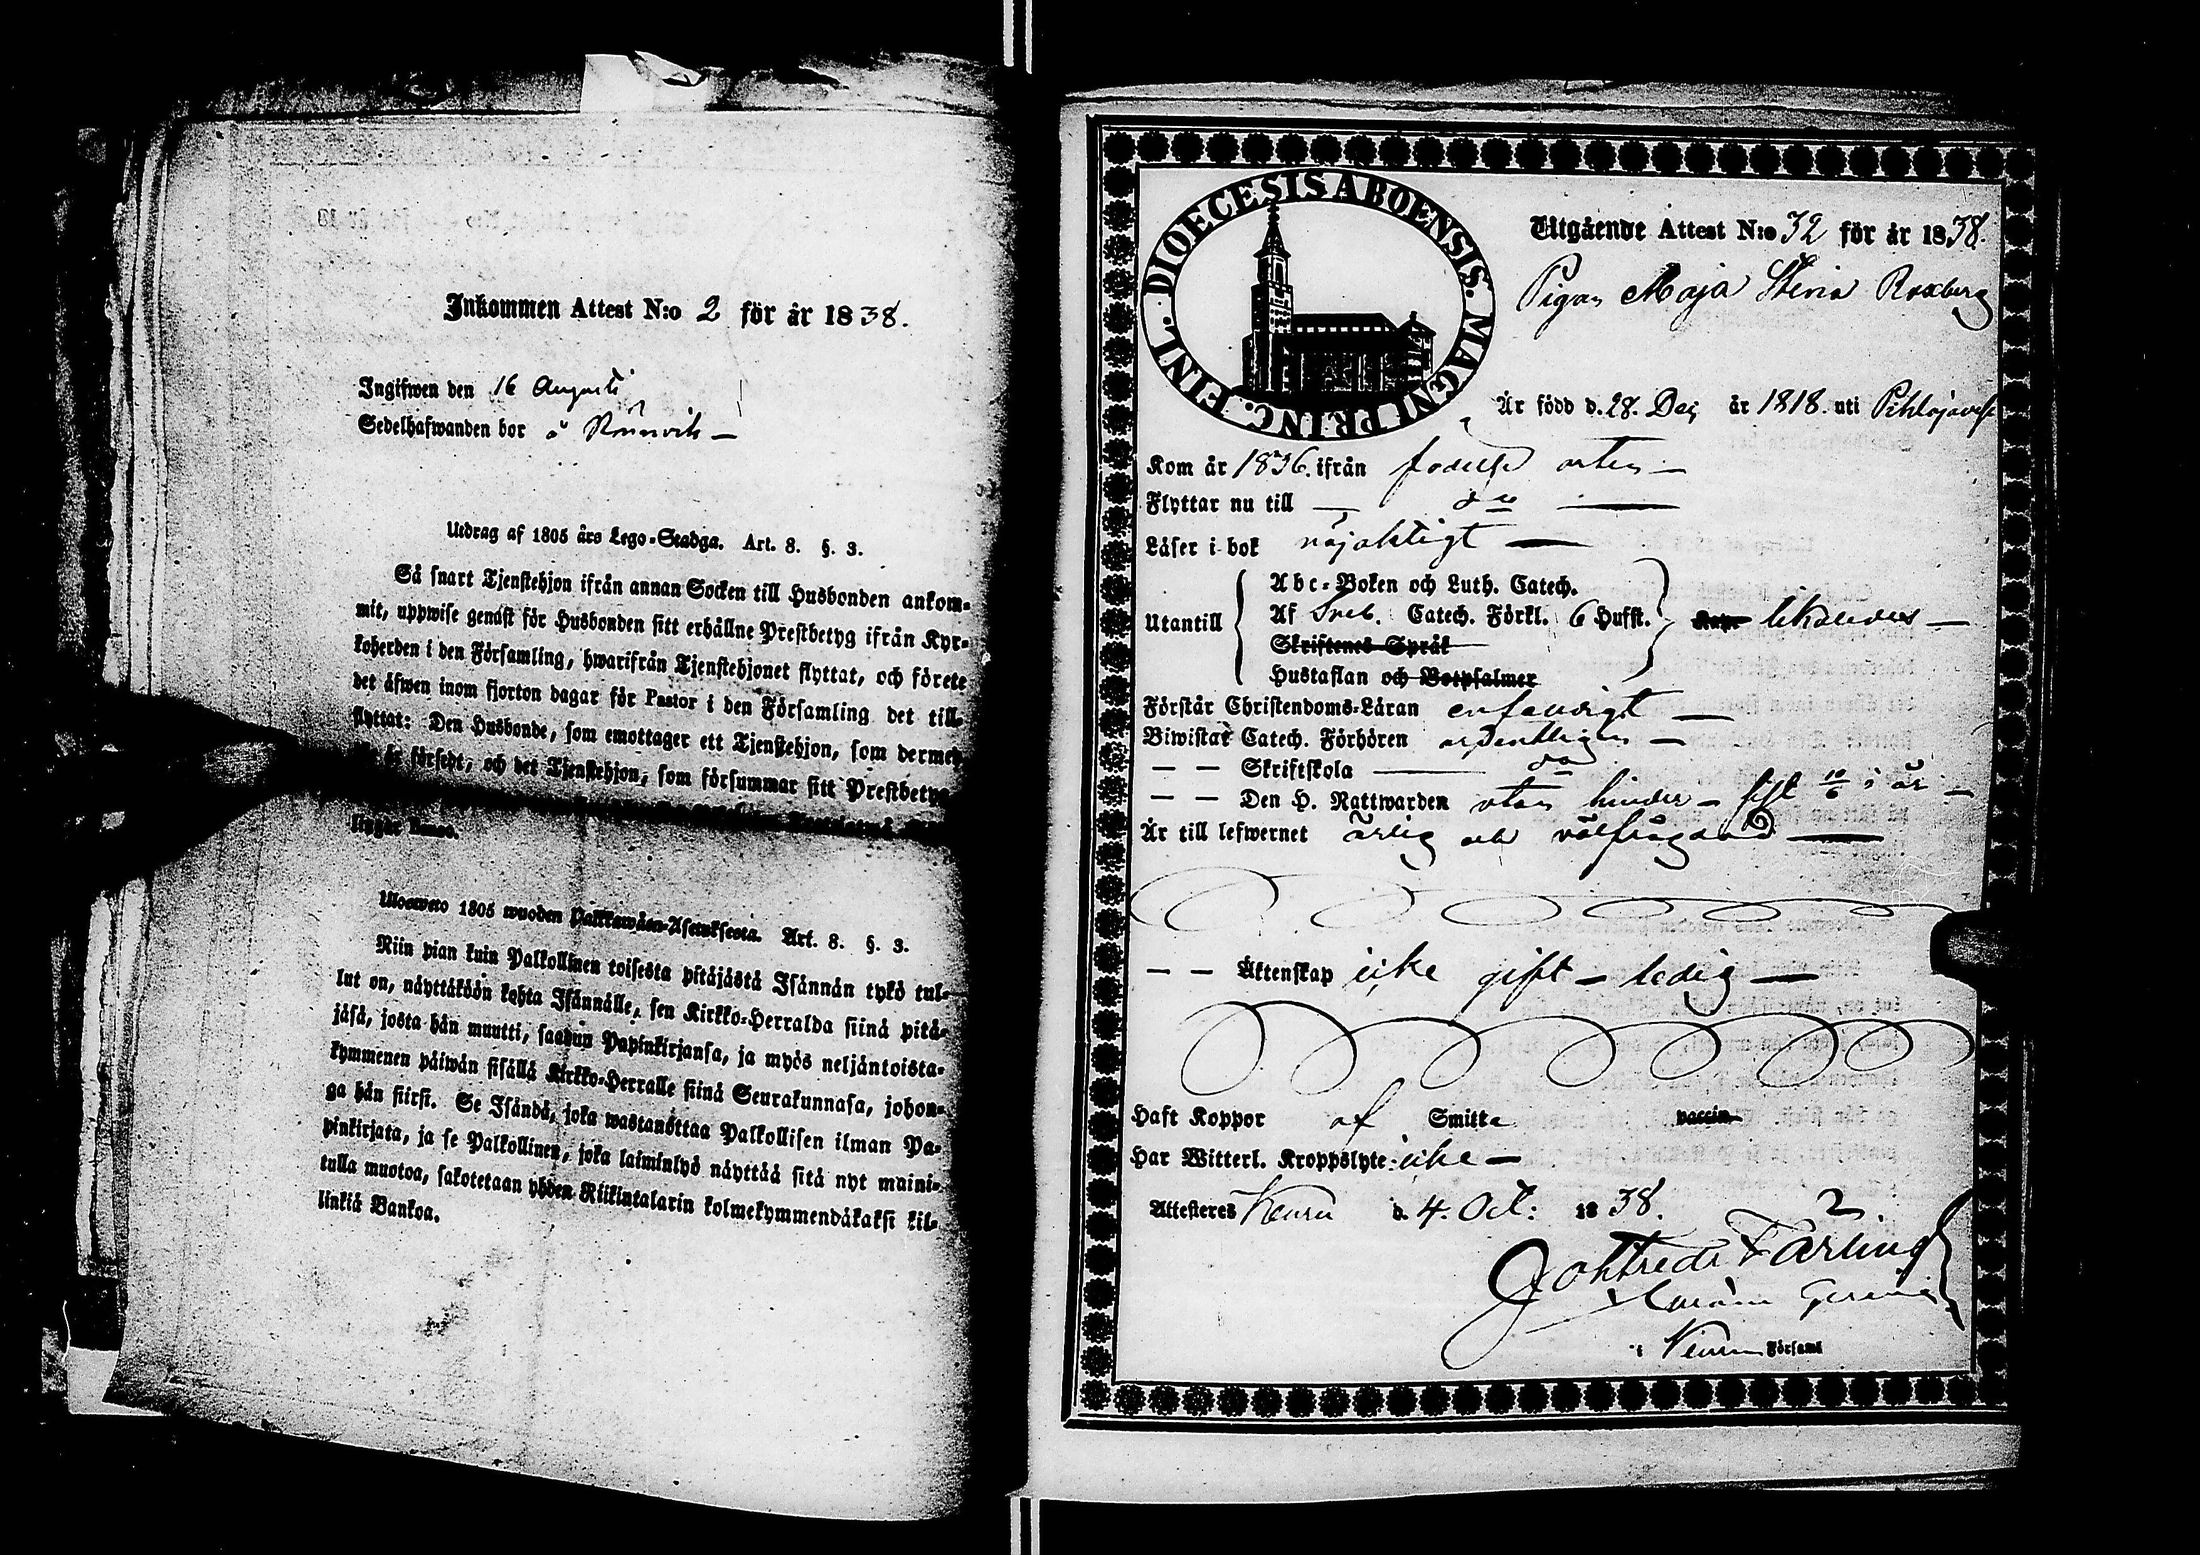 Inkommen Attest N:o 2 för år 1838.
Ingifwen den 16 Augusti
Sedelhafwanden bor å
Utdrag af 1805 års Lego-Stadga. Art. 8. §. 3.
Så snart Tjenstehjon ifrån annan Socken till Husbonden ankom-
mit, uppwise genast för Husbonden sitt erhållne Prestbetyg ifrån Kyr-
koherden i den Församling, hwarifrån Tjenstehjonet flyttat, och förete
det äfwen inom fjorton dagar för Pastor i den Församling det till-
flyttat: Den Husbonde, som emottager ett Tjenstehjon, som dermed
försedt, och det Tjenstehjon, som försummar sitt Prestbetyg
Ulosweto 1805 wuoden Palkkawäen-Asetuksesta. Art. 8. §. 3.
Niin pian kuin Palkollinen toisesta pitäjästä Isännän tykö tul-
lut on, näyttäköön kohta Isännälle, sen Kirkko-Herralda siinä pitä-
jäsä, josta hän muutti, saadun Papinkirjansa, ja myös neljäntoista-
kymmenen päiwän sisällä Kirkko-Herralle siinä Seurakunnasa, johon-
ga hän siirsi. Se Isändä, joka wastanottaa Palkollisen ilman Pa-
pinkirjata, ja se Palkollinen, joka laiminlyö näyttää sitä nyt maini-
tulla muotoa, sakotetaan yhden Riikintalarin kolmekymmendäkaksi kil-
linkiä Bankoa.
DIOECESIS ABOENSIS. MAGNI PRINC. FINL.
Utgående Attest N:o 32 för år 1838.
Pigan Maja Stina Roxberg
Är född d. 28. Dec; år 1818. uti Pihlajavesi
Kom år 1836. ifrån födelse orten —
Flyttar nu till — do —
Läser i bok nöjaktigt —
Utantill
Abc-Boken och Luth. Catech.
Af Sveb. Catech. Förkl. 6 Hufst.
Skriftenes Språk
Hustaflan och Botpsalmer
Förstår Christendoms-Läran enfaldigt —
Biwistat Catech. Förhören ordentligen —
— — Skriftskola — do
— — Den H. Nattwarden utan hinder — sist 10/6 i år —
Är till lefwernet ärlig och välfrägdad —
— — Äktenskap icke gift — ledig —
Haft Koppor af Smitta vaccin
Har Witterl. Kroppslyte: icke —
Attesteres Keuru d. 4. Oct: 1838.
Gottfred Färling
i Keuru Församl